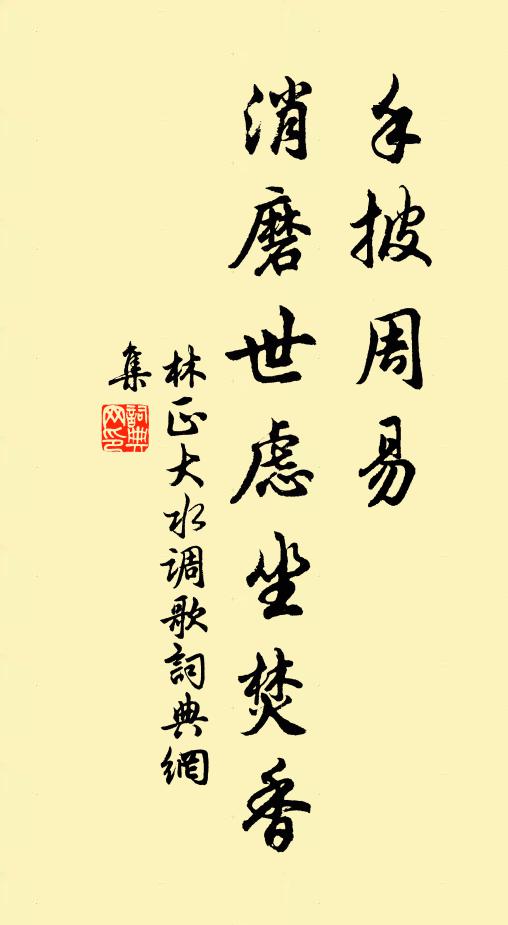 手披周易
消磨世虑坐焚香
林正大水调歌词典網
集
詞典
网印